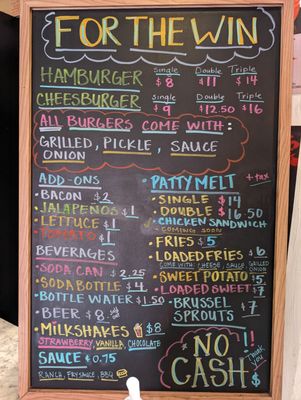 FOR THE WIN
Single Double Triple
HAMBURGER $8 $11 $14
Single Double Triple
CHEESBURGER $9 $12.50 $16
ALL BURGERS COME WITH:
GRILLED, PICKLE, SAUCE
ONION
ADD-ONS
• BACON $2
• JALAPEÑOS $1
• LETTUCE $1
• TOMATO $1
BEVERAGES
• SODA CAN $2.25
• SODA BOTTLE $4
• BOTTLE WATER $1.50
• BEER $8
• MILKSHAKES $8
STRAWBERRY, VANILLA, CHOCOLATE
SAUCE $0.75
RANCH, FRY SAUCE, BBQ
• PATTY MELT + tax
• SINGLE $14
• DOUBLE $16.50
• CHICKEN SANDWICH
COMING SOON
• FRIES $5
• LOADED FRIES $6
COME WITH: CHEESE, SAUCE, GRILLED ONION
• SWEET POTATO $5
• LOADED SWEET $7
• BRUSSEL
SPROUTS $7
NO
CASH
Thank you
$